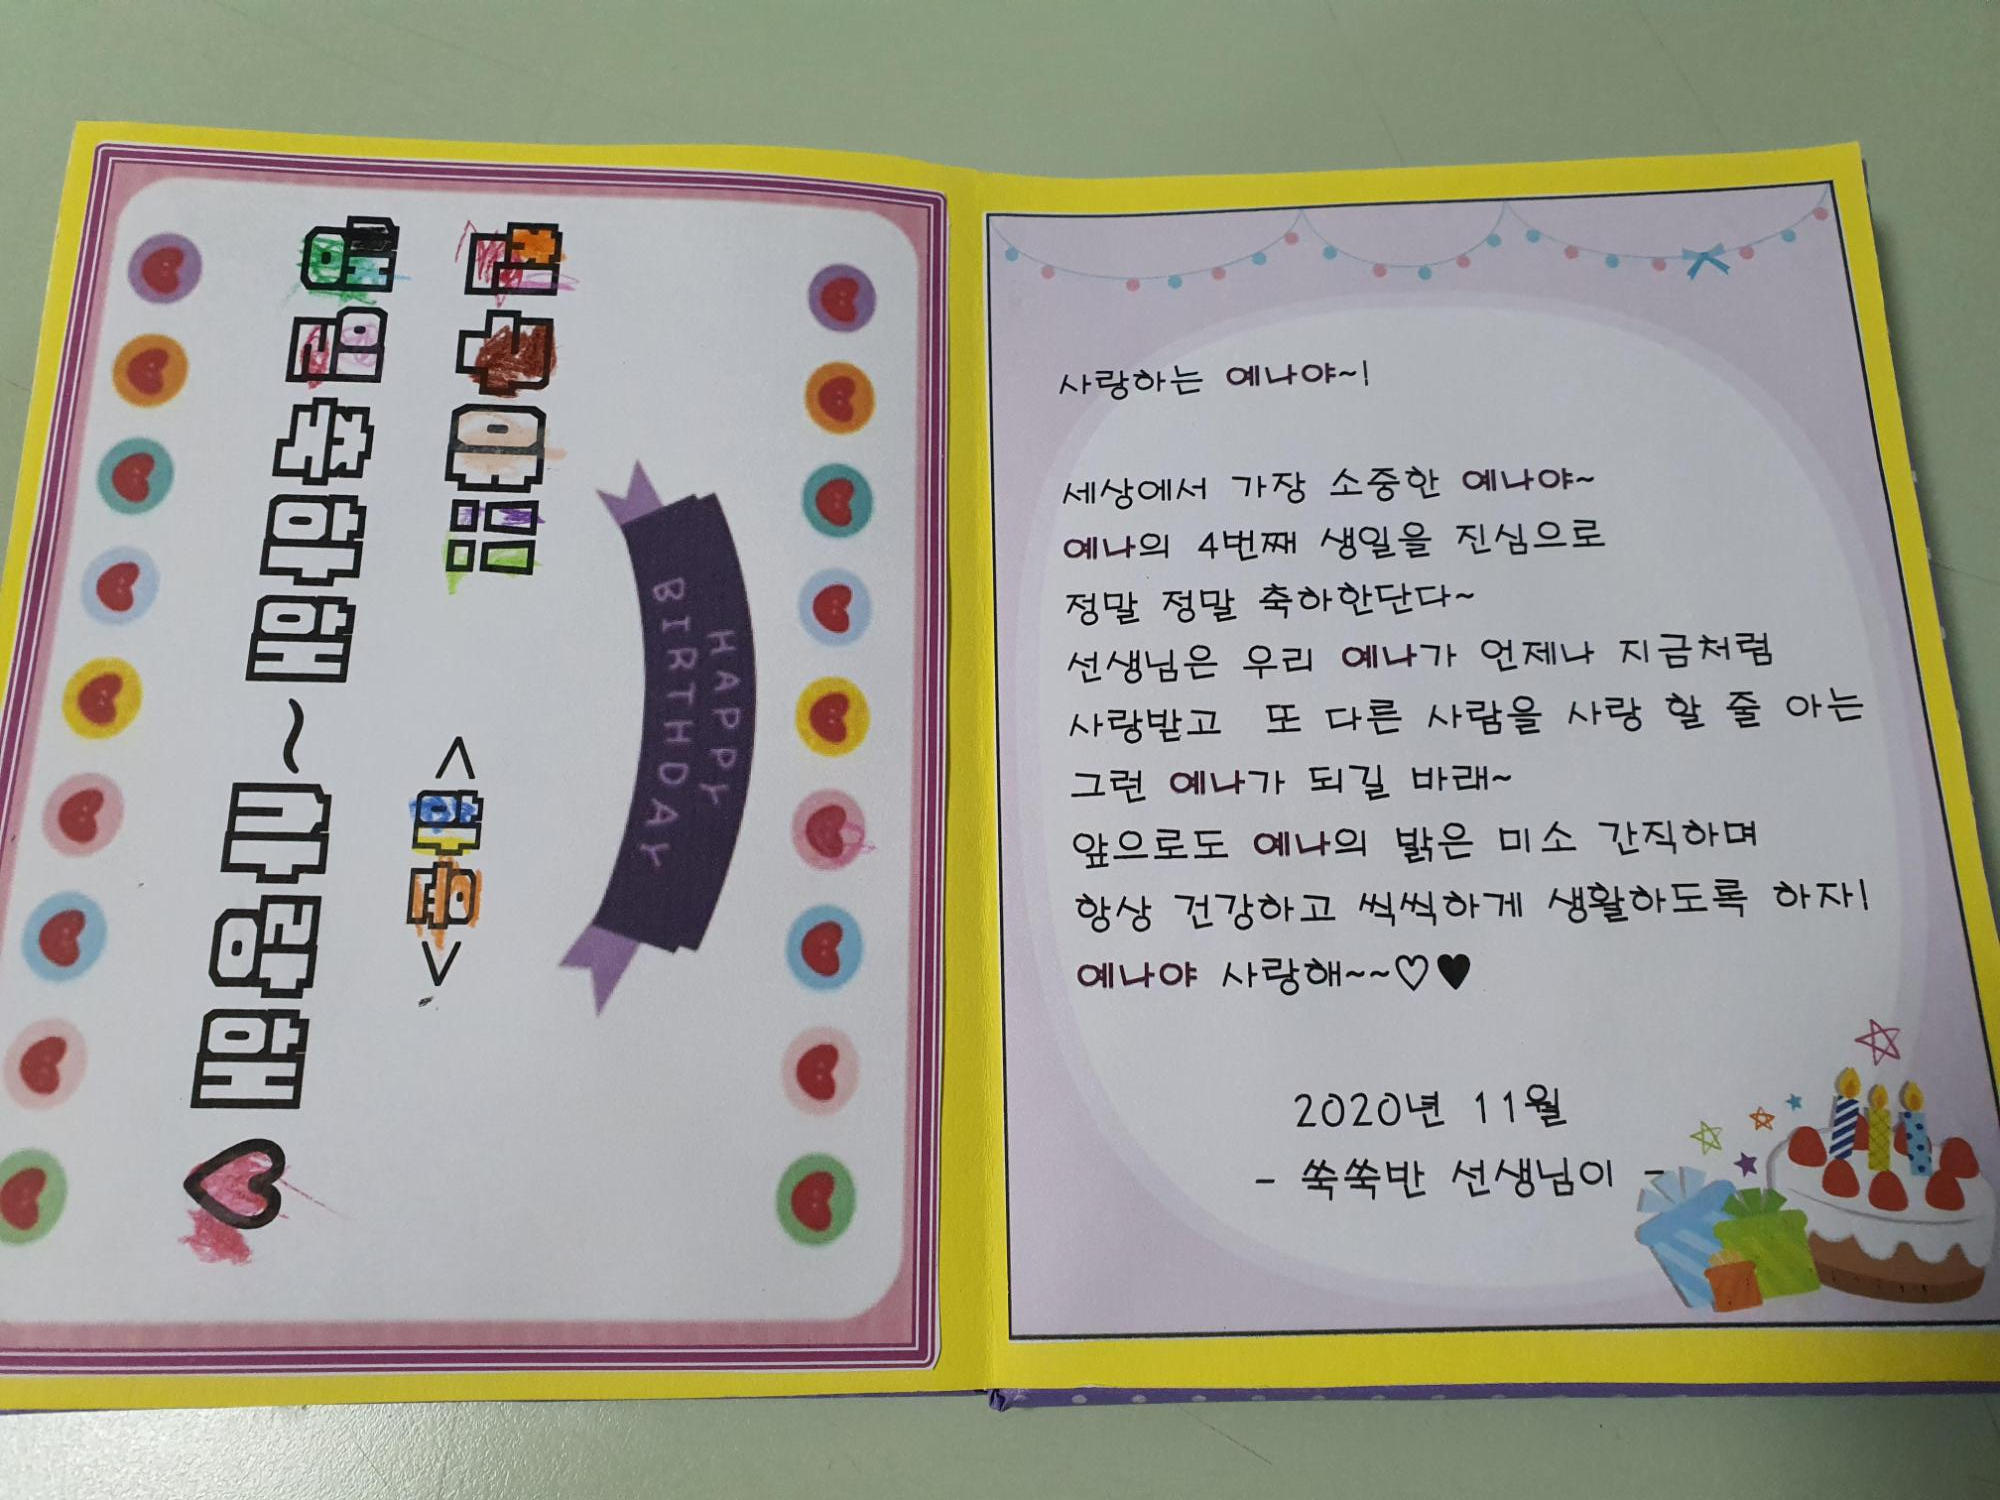 HAPPY
BIRTHDAY
예나야!!
생일 축하해~사랑해♡
사랑하는 예나야~!
세상에서 가장 소중한 예나야~
예나의 4번째 생일을 진심으로
정말 정말 축하한단다~
선생님은 우리 예나가 언제나 지금처럼
사랑받고 또 다른 사람을 사랑 할 줄 아는
그런 예나가 되길 바래~
앞으로도 예나의 밝은 미소 간직하며
항상 건강하고 씩씩하게 생활하도록 하자!
예나야 사랑해~~♡♥
2020년 11월
- 쑥쑥반 선생님이 -